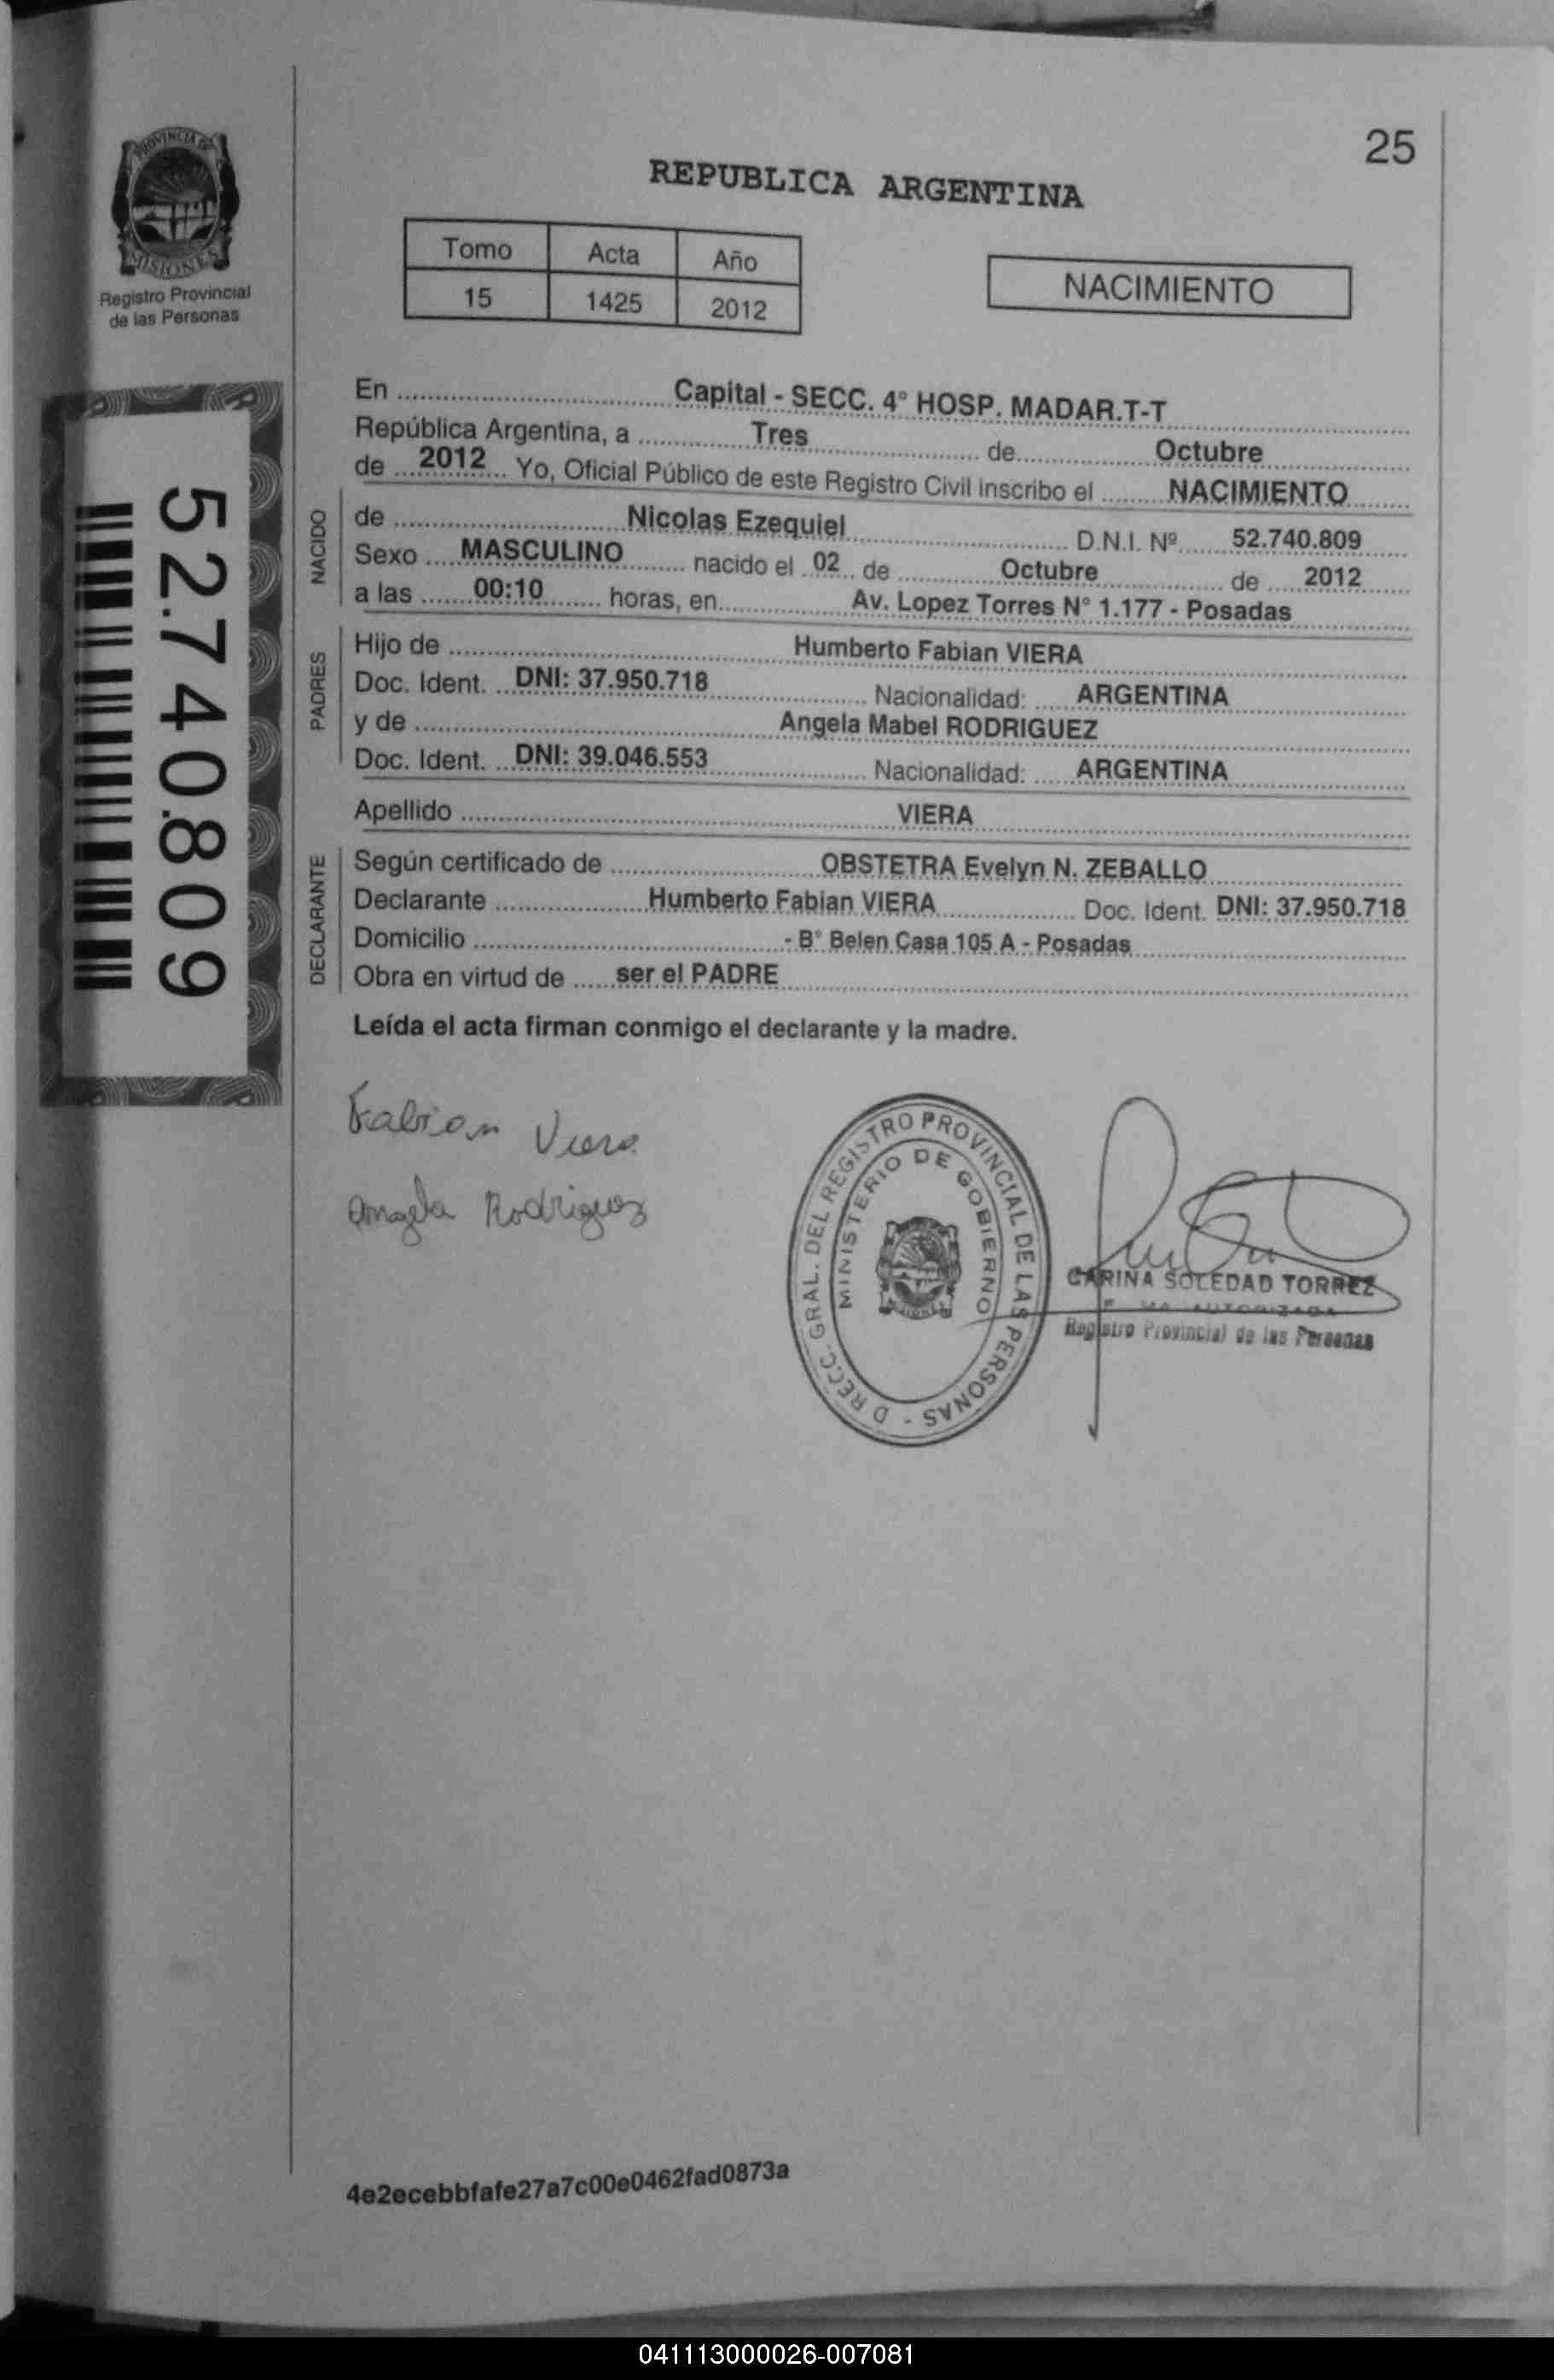 25
PROVINCIA DE
MISIONES
Registro Provincial
de las Personas
REPUBLICA ARGENTINA
Tomo Acta Año
15 1425 2012
NACIMIENTO
52.740.809
En Capital - SECC. 4° HOSP. MADAR.T-T
República Argentina, a Tres de Octubre
de 2012 Yo, Oficial Público de este Registro Civil inscribo el NACIMIENTO
NACIDO
de Nicolas Ezequiel D.N.I. Nº 52.740.809
Sexo MASCULINO nacido el 02 de Octubre de 2012
a las 00:10 horas, en Av. Lopez Torres N° 1.177 - Posadas
PADRES
Hijo de Humberto Fabian VIERA
Doc. Ident. DNI: 37.950.718 Nacionalidad: ARGENTINA
y de Angela Mabel RODRIGUEZ
Doc. Ident. DNI: 39.046.553 Nacionalidad: ARGENTINA
Apellido VIERA
DECLARANTE
Según certificado de OBSTETRA Evelyn N. ZEBALLO
Declarante Humberto Fabian VIERA Doc. Ident. DNI: 37.950.718
Domicilio - B° Belen Casa 105 A - Posadas
Obra en virtud de ser el PADRE
Leída el acta firman conmigo el declarante y la madre.
Fabian Viera
Angela Rodriguez
D RECC. GRAL. DEL REGISTRO PROVINCIAL DE LAS PERSONAS -
MINISTERIO DE GOBIERNO
CARINA SOLEDAD TORREZ
AUTORIZADA
Registro Provincial de las Personas
4e2ecebbfafe27a7c00e0462fad0873a
041113000026-007081